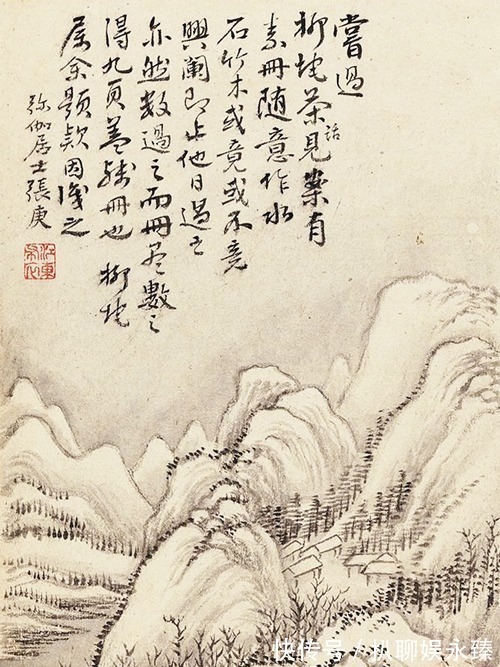 嘗過
柳坨茶話見案有
素冊隨意作水
石竹木或竟或不竟
興闌即止他日過之
亦然數過之而冊尽數之
得九頁蓋殘冊也 柳坨
屬余題款因識之
弥伽居士張庚
快传号 / 聊娱永臻